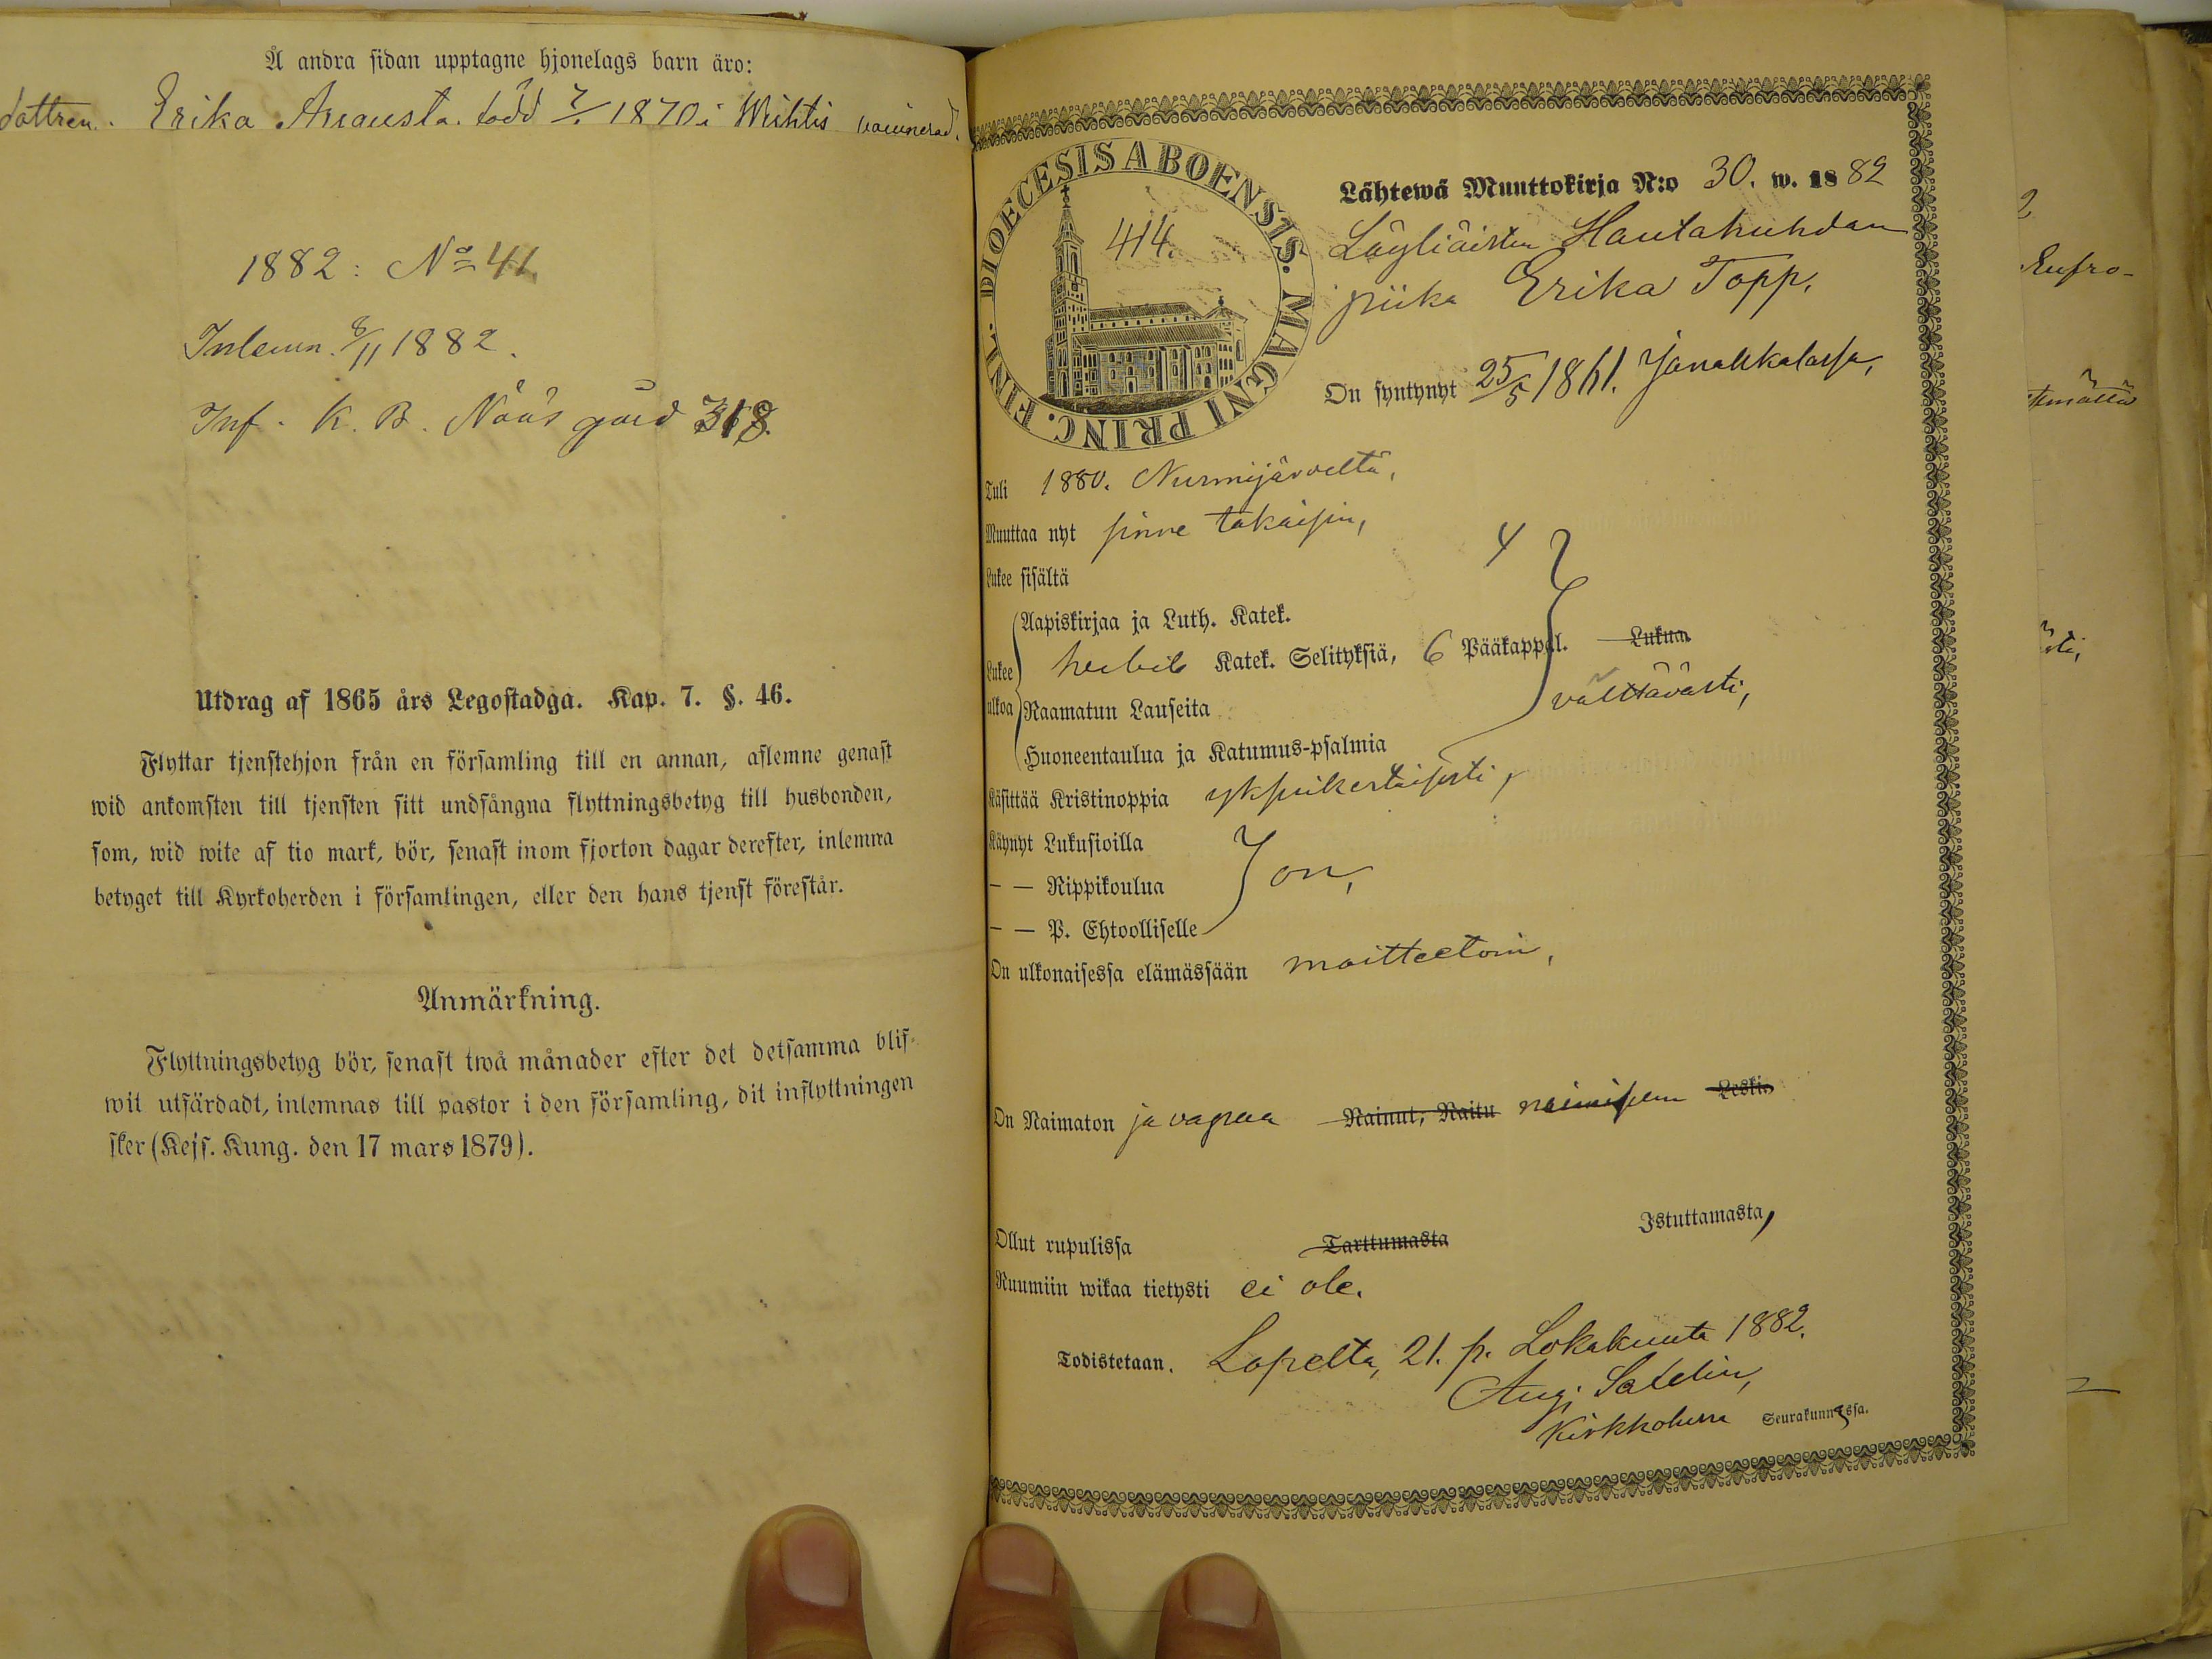 Å andra sidan upptagne hjonelags barn äro:
dottren. Erika Augusta. född 1870 i Wichtis vaccinerad.
1882: No 41
Inlemn. 8/11 1882.
Inf. K. B. Nääs gård 318.
Utdrag af 1865 års Legostadga. Kap. 7. §. 46.
Flyttar tjenstehjon från en församling till en annan, aflemne genast
wid ankomsten till tjensten sitt undfångna flyttningsbetyg till husbonden,
som, wid wite af tio mark, bör, senast inom fjorton dagar derefter, inlemna
betyget till Kyrkoherden i församlingen, eller den hans tjenst förestår.
Anmärkning.
Flyttningsbetyg bör, senast twå månader efter det detsamma blif-
wit utfärdadt, inlemnas till pastor i den församling, dit inflyttningen
sker (Kejs. Kung. den 17 mars 1879).
DIOECESIS ABOENSIS. MAGNI PRINC. FINL.
414.
Lähtewä Muuttokirja N:o 30. w. 1882
Läyliäisten Hautakuhdan
piika Erika Topp.
On syntynyt 25/5 1861. Janakkalassa,
Tuli 1880. Nurmijärveltä,
Muuttaa nyt sinne takaisin,
Lukee sisältä
Aapiskirjaa ja Luth. Katek.
Lukee ulkoa
Katek. Selityksiä, 6 Pääkappal. Lukua
välttävästi,
Raamatun Lauseita
Huoneentaulua ja Katumus-psalmia
Käsittää Kristinoppia yksinkertaisesti,
Käynyt Lukusioilla
— — Rippikoulua on,
— — P. Ehtoolliselle
On ulkonaisessa elämässään moitteetoin,
On Naimaton ja vapaa Nainut, Naitu naimiseen Leski
Ollut rupulissa Tarttumasta Istuttamasta,
Ruumiin wikaa tietysti ei ole.
Todistetaan. Lopelta, 21. p. Lokakuuta 1882.
Aug.
Kirkkoherra Seurakunnassa.
2
Eufro-